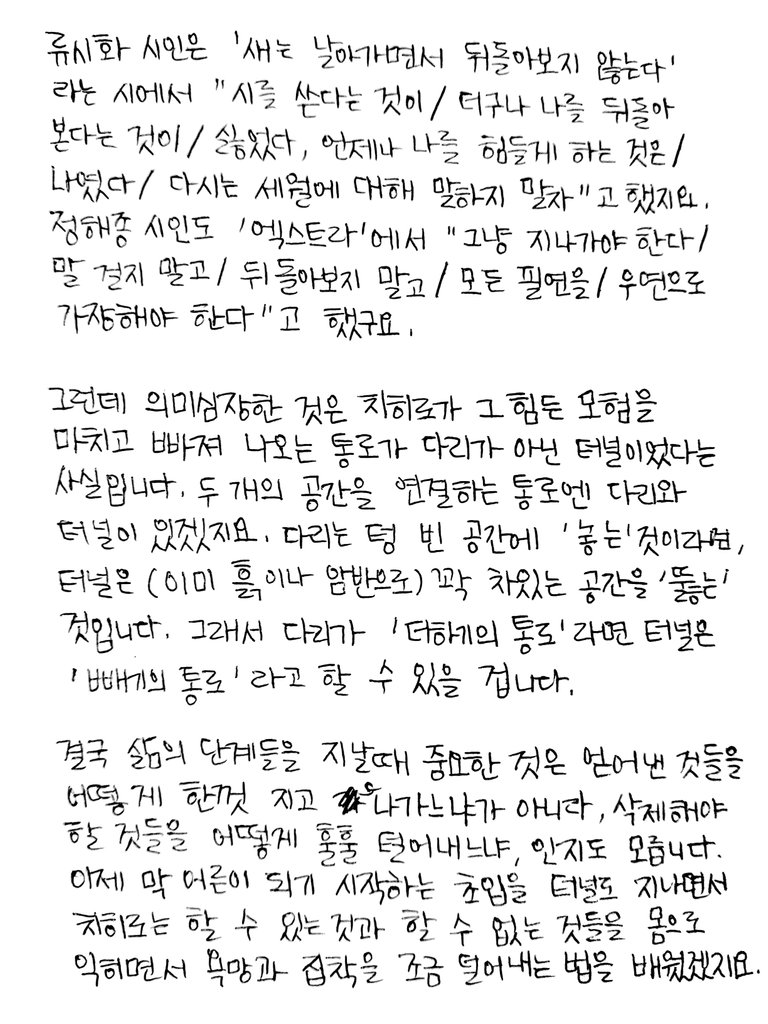 류시화 시인은 '새는 날아가면서 뒤돌아보지 않는다'
라는 시에서 "시를 쓴다는 것이/ 더구나 나를 뒤돌아
본다는 것이/ 싫었다, 언제나 나를 힘들게 하는 것은/
나였다/ 다시는 세월에 대해 말하지 말자"고 했지요.
정해종 시인도 '엑스트라'에서 "그냥 지나가야 한다/
말 걸지 말고/ 뒤돌아보지 말고/ 모든 필연을/ 우연으로
가장해야 한다"고 했구요.

그런데 의미심장한 것은 치히로가 그 힘든 모험을
마치고 빠져 나오는 통로가 다리가 아닌 터널이었다는
사실입니다. 두 개의 공간을 연결하는 통로엔 다리와
터널이 있겠지요. 다리는 텅 빈 공간에 '놓는' 것이라면,
터널은 (이미 흙이나 암반으로) 꽉 차있는 공간을 '뚫는'
것입니다. 그래서 다리가 '더하기의 통로'라면 터널은
'빼기의 통로'라고 할 수 있을 겁니다.

결국 삶의 단계들을 지날때 중요한 것은 얻어낸 것들을
어떻게 한껏 지고 나가느냐가 아니라, 삭제해야
할 것들을 어떻게 훌훌 털어내느냐, 인지도 모릅니다.
이제 막 어른이 되기 시작하는 초입을 터널도 지나면서
치히로는 할 수 있는것과 할 수 없는 것들을 몸으로
익히면서 욕망과 집착을 조금 덜어내는 법을 배웠겠지요.